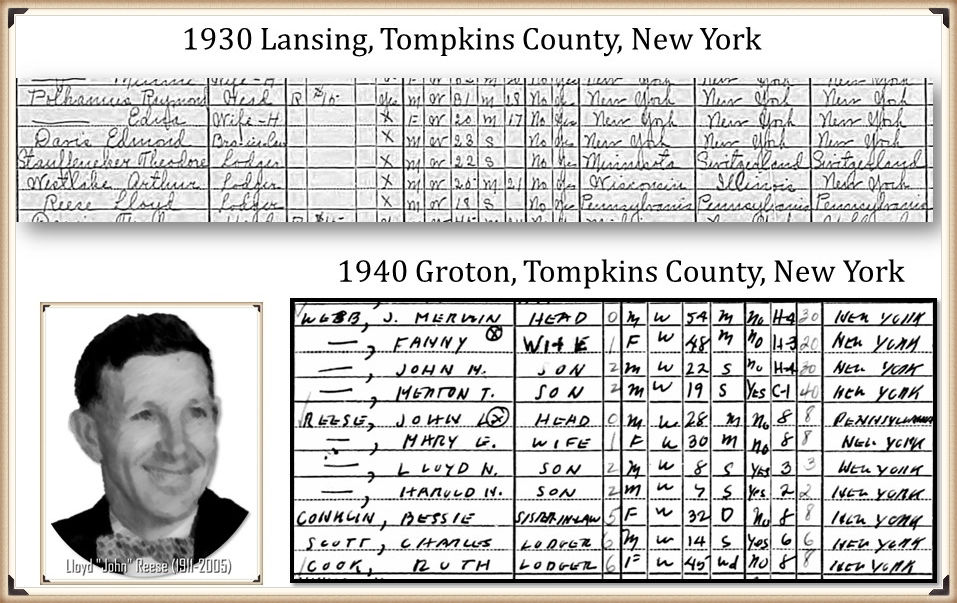 1930 Lansing, Tompkins County, New York
Wife-H New York New York New York
Polhamus Raymond Head R $15 Yes M W 21 M 18 No Yes New York New York New York
Edna Wife-H X F W 20 M 17 No Yes New York New York New York
Davis Edmond X M W 23 S No Yes New York New York New York
Stauffeneker Theodore Lodger X M W 22 S No Yes Minnesota Switzerland Switzerland
Westlake Arthur Lodger X M W 20 M 21 No Yes Wisconsin Illinois New York
Reese Lloyd Lodger X M W 18 S No Yes Pennsylvania Pennsylvania Pennsylvania
1940 Groton, Tompkins County, New York
WEBB, J. MERWIN HEAD 0 M W 54 M No H-4 30 NEW YORK
—, FANNY X WIFE 1 F W 48 M No H-3 20 NEW YORK
—, JOHN M. SON 2 M W 22 S No H-4 30 NEW YORK
—, MERTON T. SON 2 M W 19 S Yes C-1 40 NEW YORK
REESE, JOHN L X HEAD 0 M W 28 M No 8 8 PENNSYLVANIA
—, MARY E. WIFE 1 F W 30 M No 8 8 NEW YORK
—, LLOYD N. SON 2 M W 8 S Yes 3 3 NEW YORK
—, HAROLD N. SON 2 M W 7 S Yes 2 2 NEW YORK
CONKLIN, BESSIE SISTER-IN-LAW 5 F W 32 D No 8 8 NEW YORK
SCOTT, CHARLES LODGER 6 M W 14 S Yes 6 6 NEW YORK
COOK, RUTH LODGER 6 F W 45 Wd No 8 8 NEW YORK
Lloyd "John" Reese (1911-2005)